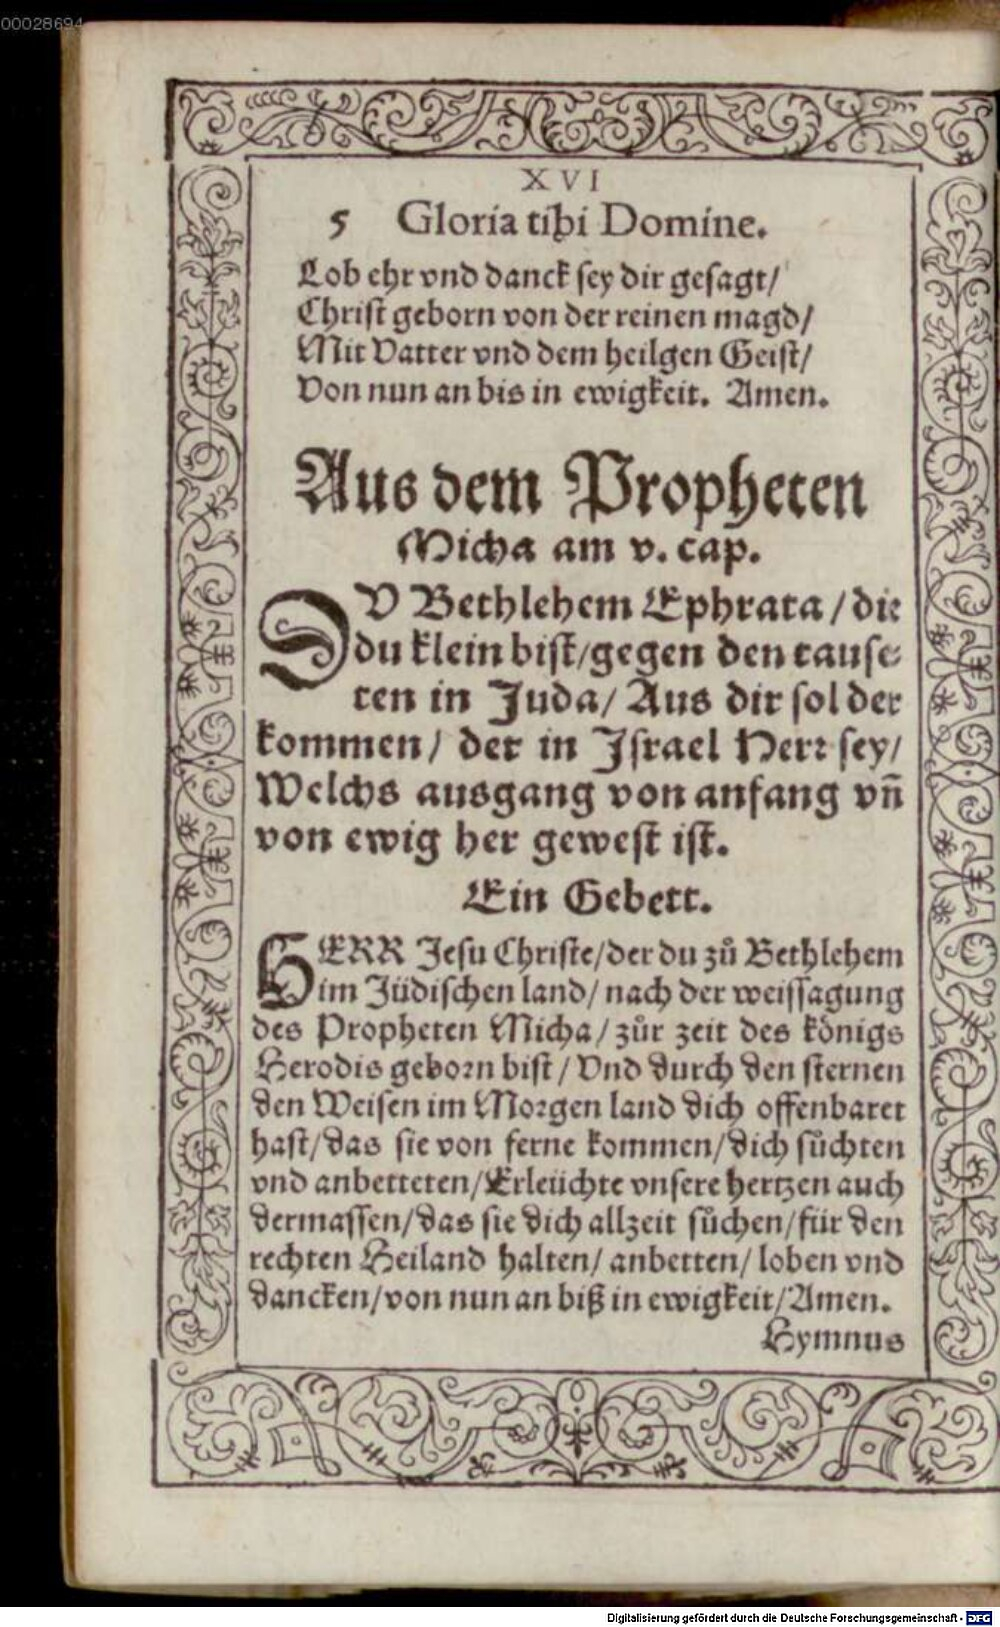 00028694
XVI
5 Gloria tibi Domine.
Lob ehr vnd danck sey dir gesagt/
Christ geborn von der reinen magd/
Mit Vatter vnd dem heilgen Geist/
Von nun an bis in ewigkeit. Amen.
Aus dem Propheten
Micha am v. cap.
DV Bethlehem Ephrata/die
du klein bist/gegen den tause-
ten in Juda/ Aus dir sol der
kommen/ der in Israel Herr sey/
Welchs ausgang von anfang vn̄
von ewig her gewest ist.
Ein Gebett.
HERR Jesu Christe/der du zů Bethlehem
im Jüdischen land/ nach der weissagung
des Propheten Micha/ zůr zeit des königs
Herodis geborn bist/ Vnd durch den sternen
den Weisen im Morgen land dich offenbaret
hast/das sie von ferne kommen/dich sůchten
vnd anbetteten/Erleüchte vnsere hertzen auch
dermassen/das sie dich allzeit sůchen/für den
rechten Heiland halten/ anbetten/ loben vnd
dancken/von nun an biß in ewigkeit/Amen.
Hymnus
Digitalisierung gefördert durch die Deutsche Forschungsgemeinschaft - DFG